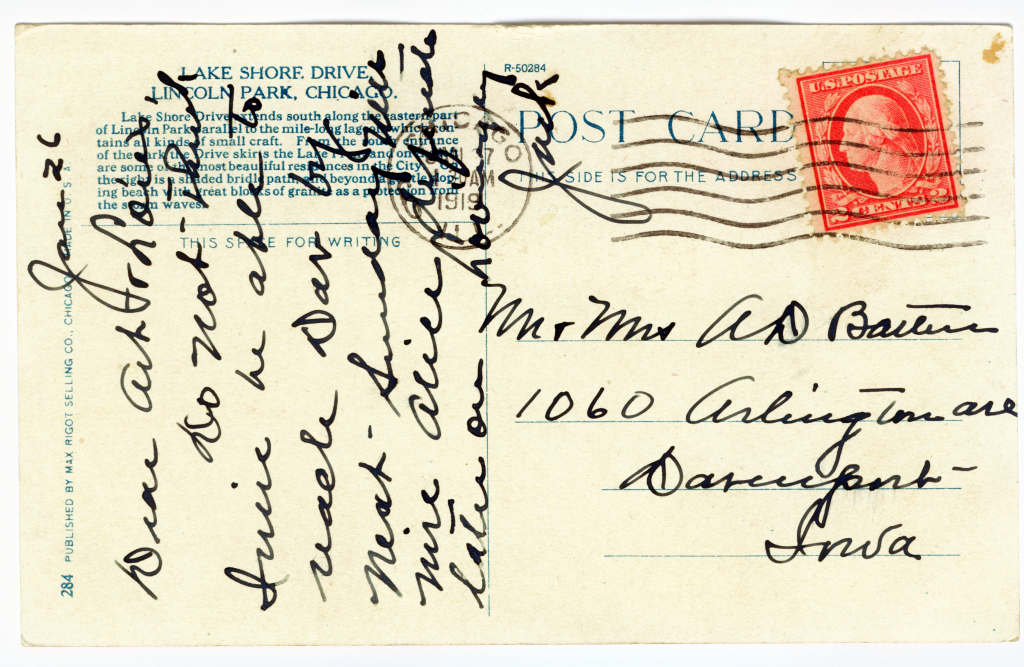 LAKE SHORE DRIVE,
LINCOLN PARK, CHICAGO.
Lake Shore Drive extends south along the eastern part
of Lincoln Park parallel to the mile-long lagoon which con-
tains all kinds of small craft. From the entrance
of the park the Drive skirts the Lake and on the
are some of the most beautiful residences in the City. To
the right is a shaded bridle path and beyond a gentle slop-
ing beach with great blocks of granite as a protection from
the storm waves.
THIS SPACE FOR WRITING
284 PUBLISHED BY MAX RIGOT SELLING CO., CHICAGO MADE IN U.S.A.
Jan 26
Dear Art & Louis
Do not think
I will be able to
reach Dav by
next Sunday
wire Alice
later on
Jack
R-50284
POST CARD
THIS SIDE IS FOR THE ADDRESS
CHICAGO
27
AM
1919
ILL
U.S. POSTAGE
2 CENTS 2
Mr & Mrs A D
1060 Arlington ave
Davenport
Iowa